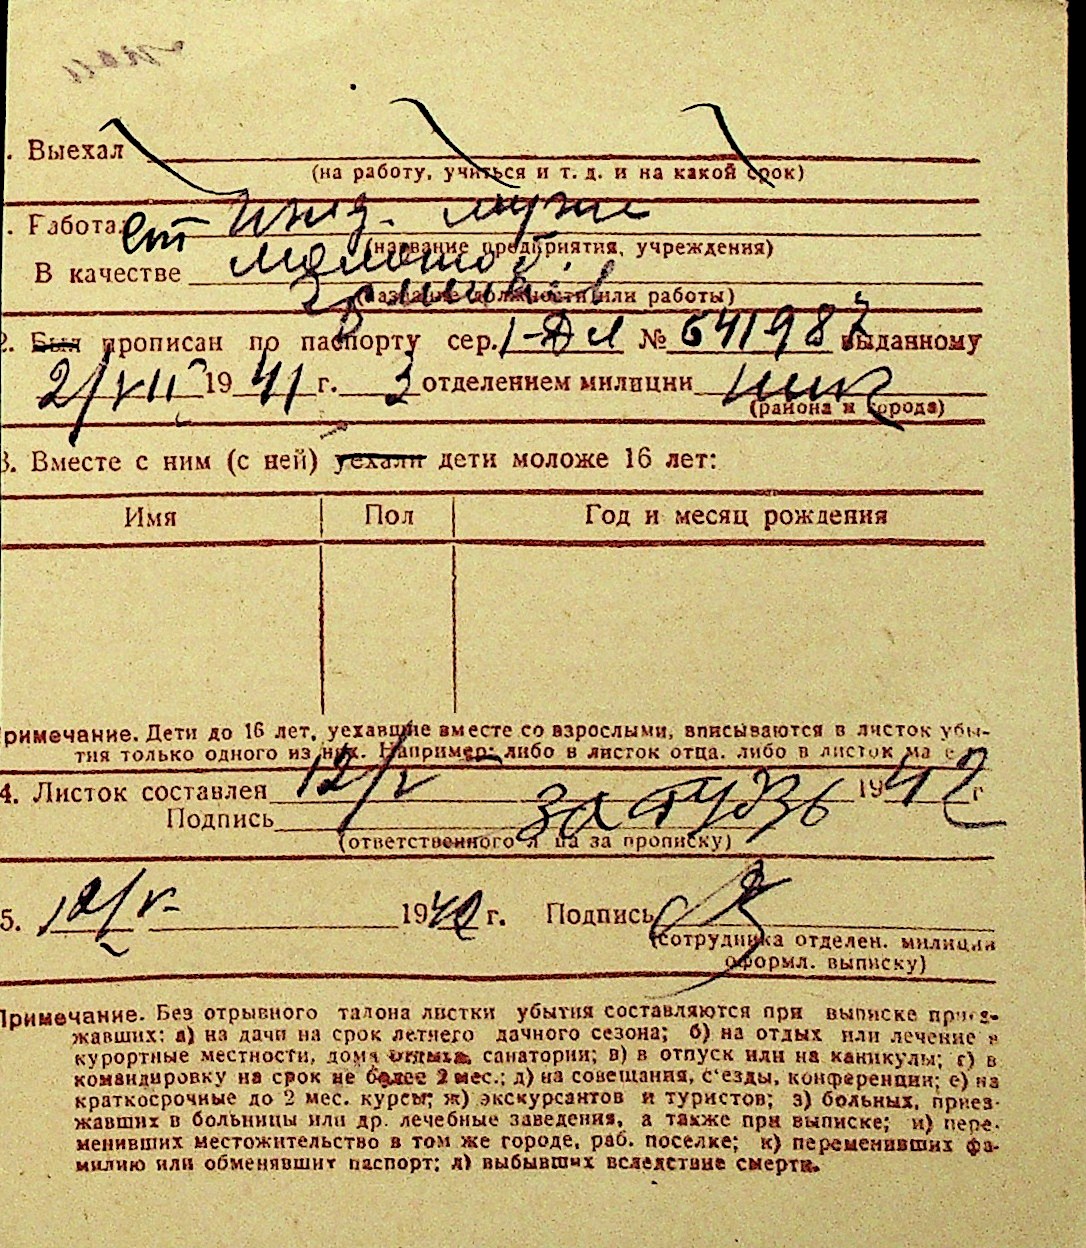 . Выехал
(на работу, учиться и т. д. и на какой срок)
. Работа Ижд. мужа
(название предприятия, учреждения)
В качестве
(название должности или работы)
2. Был прописан по паспорту сер. № 641987 выданному
2/VII 1941 г. 3 отделением милиции
(района и города)
3. Вместе с ним (с ней) уехали дети моложе 16 лет:
Имя Пол Год и месяц рождения
римечание. Дети до 16 лет, уехавшие вместе со взрослыми, вписываются в листок убы-
тия только одного из них. Например: либо в листок отца, либо в листок
4. Листок составлен 12/V 1942 г
Подпись
(ответственного л ца за прописку)
5. 12/V- 1942 г. Подпись
(сотрудника отделен. милиции
оформл. выписку)
Примечание. Без отрывного талона листки убытия составляются при выписке приез-
жавших: а) на дачи на срок летнего дачного сезона; б) на отдых или лечение в
курортные местности, дома отдыха, санатории; в) в отпуск или на каникулы; г) в
командировку на срок не более 2 мес.; д) на совещания, с'езды, конференции; е) на
краткосрочные до 2 мес. курсы; ж) экскурсантов и туристов; з) больных, приез-
жавших в больницы или др. лечебные заведения, а также при выписке; и) пере-
менивших местожительство в том же городе, раб. поселке; к) переменивших фа-
милию или обменявшит паспорт; л) выбывших вследствие смерти.